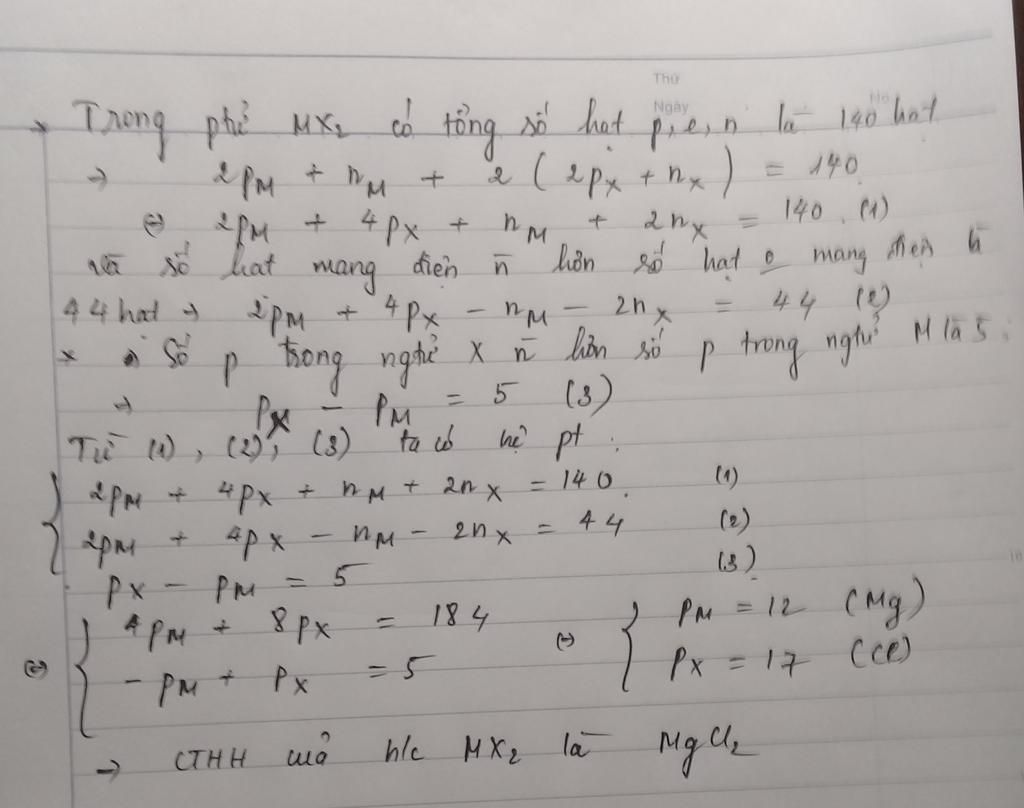 Thứ
Ngày
No
* Trong phtử MX₂ có tổng số hạt p,e,n là 140 hạt
→ 2pM + nM + 2 ( 2pX + nX ) = 140
⇔ 2pM + 4pX + nM + 2nX = 140. (1)
và số hạt mang điện n̄ hơn số hạt o mang điện là
44 hạt → 2pM + 4pX - nM - 2nX = 44 (2)
* Số p trong ngtử X n̄ hơn số p trong ngtử M là 5.
→ PX - PM = 5 (3)
Từ (1), (2), (3) ta có hệ pt :
2pM + 4pX + nM + 2nX = 140. (1)
2pM + 4pX - nM - 2nX = 44 (2)
pX - pM = 5 (3)
⇔ { 4pM + 8pX = 184 ⇔ { pM = 12 (Mg)
- pM + pX = 5 pX = 17 (Cl)
→ CTHH của h/c MX₂ là MgCl₂